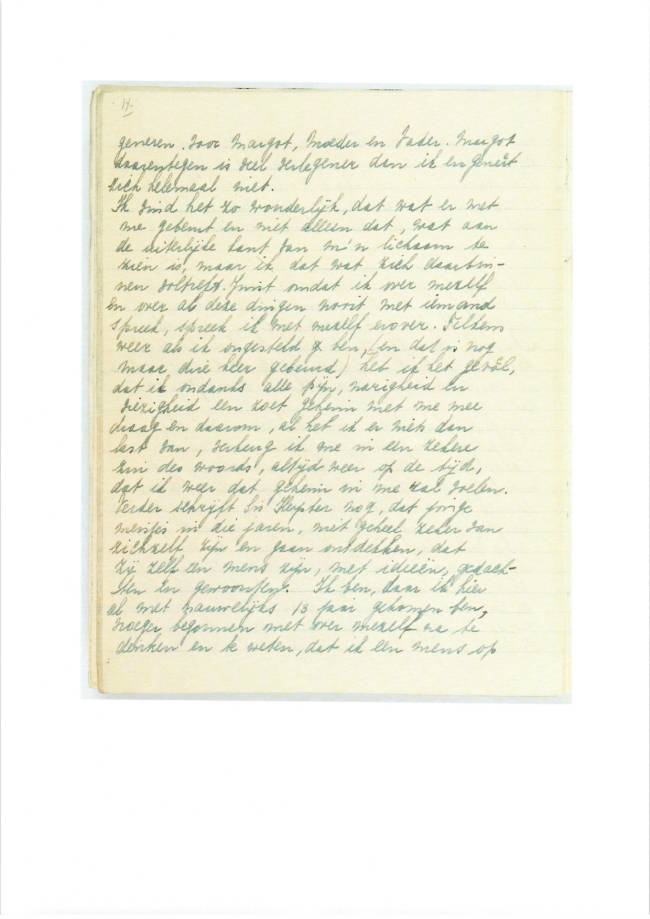 14.
generen voor Margot, Moeder en Vader. Margot
daarentegen is veel verlegener dan ik en geneert
zich helemaal niet.
Ik vind het zo wonderlijk, dat wat er met
me gebeurt en niet alleen dat, wat aan
de uiterlijke kant van m'n lichaam te
zien is, maar ik dat wat zich daarbin-
nen voltrekt. Juist omdat ik over mezelf
en over al deze dingen nooit met iemand
spreek, spreek ik met mezelf erover. Telkens
weer als ik ongesteld ben, (en dat is nog
maar drie keer gebeurd) heb ik het gevoel,
dat ik ondanks alle pijn, narigheid en
viezigheid een zoet geheim met me mee
draag en daarom, al heb ik er niets dan
last van, verheug ik me in een zekere
zin des woords, altijd weer op de tijd,
dat ik weer dat geheim in me zal voelen.
Verder schrijft Sis Heyster nog, dat jonge
meisjes in die jaren, niet geheel zeker van
zichzelf zijn en gaan ontdekken, dat
zij zelf een mens zijn, met ideeën, gedach-
ten en gewoonten. Ik ben, daar ik hier
al met nauwelijks 13 jaar gekomen ben,
vroeger begonnen met over mezelf na te
denken en te weten, dat ik een mens op